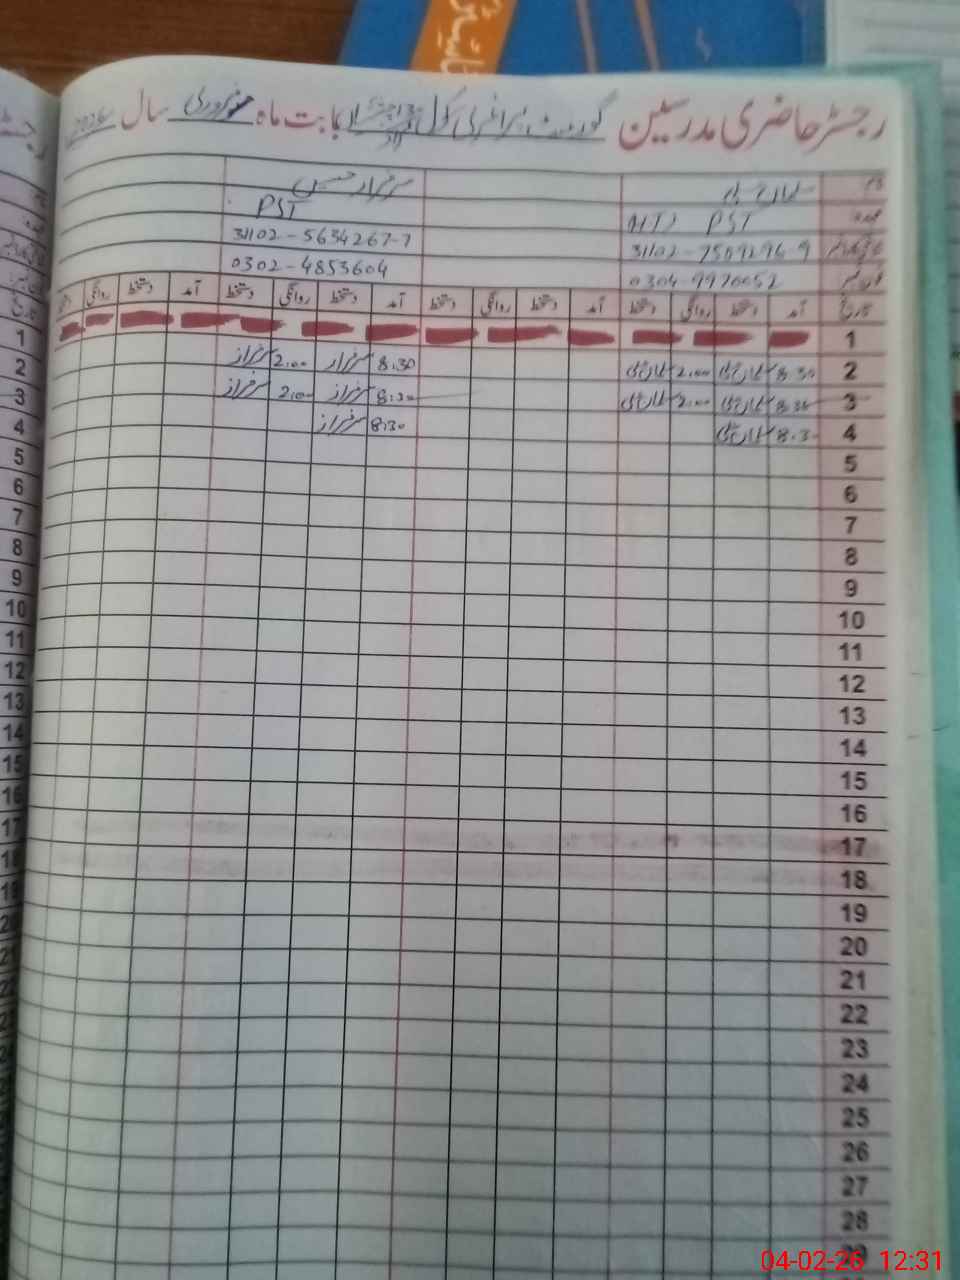 رجسٹر حاضری مدرسین گورنمنٹ پرائمری سکول بابت ماہ فروری سال 2026
نام سرفراز حسین
عہدہ HT) PST PST
31102-7509296-9 31102-5634267-7
فون نمبر 0304 9970052 0302-4853604
تاریخ آمد دستخط روانگی دستخط آمد دستخط روانگی دستخط آمد دستخط روانگی دستخط آمد دستخط روانگی دستخط
1
2 8.30 2.00 8.30 سرفراز 2.00 سرفراز
3 8.30 2.00 8.30 سرفراز 2.00 سرفراز
4 8.30 8.30 سرفراز
5
6
7
8
9
10
11
12
13
14
15
16
17
18
19
20
21
22
23
24
25
26
27
28
29
1
2
3
4
5
6
7
8
9
10
11
12
13
14
15
16
17
18
19
04-02-26 12:31